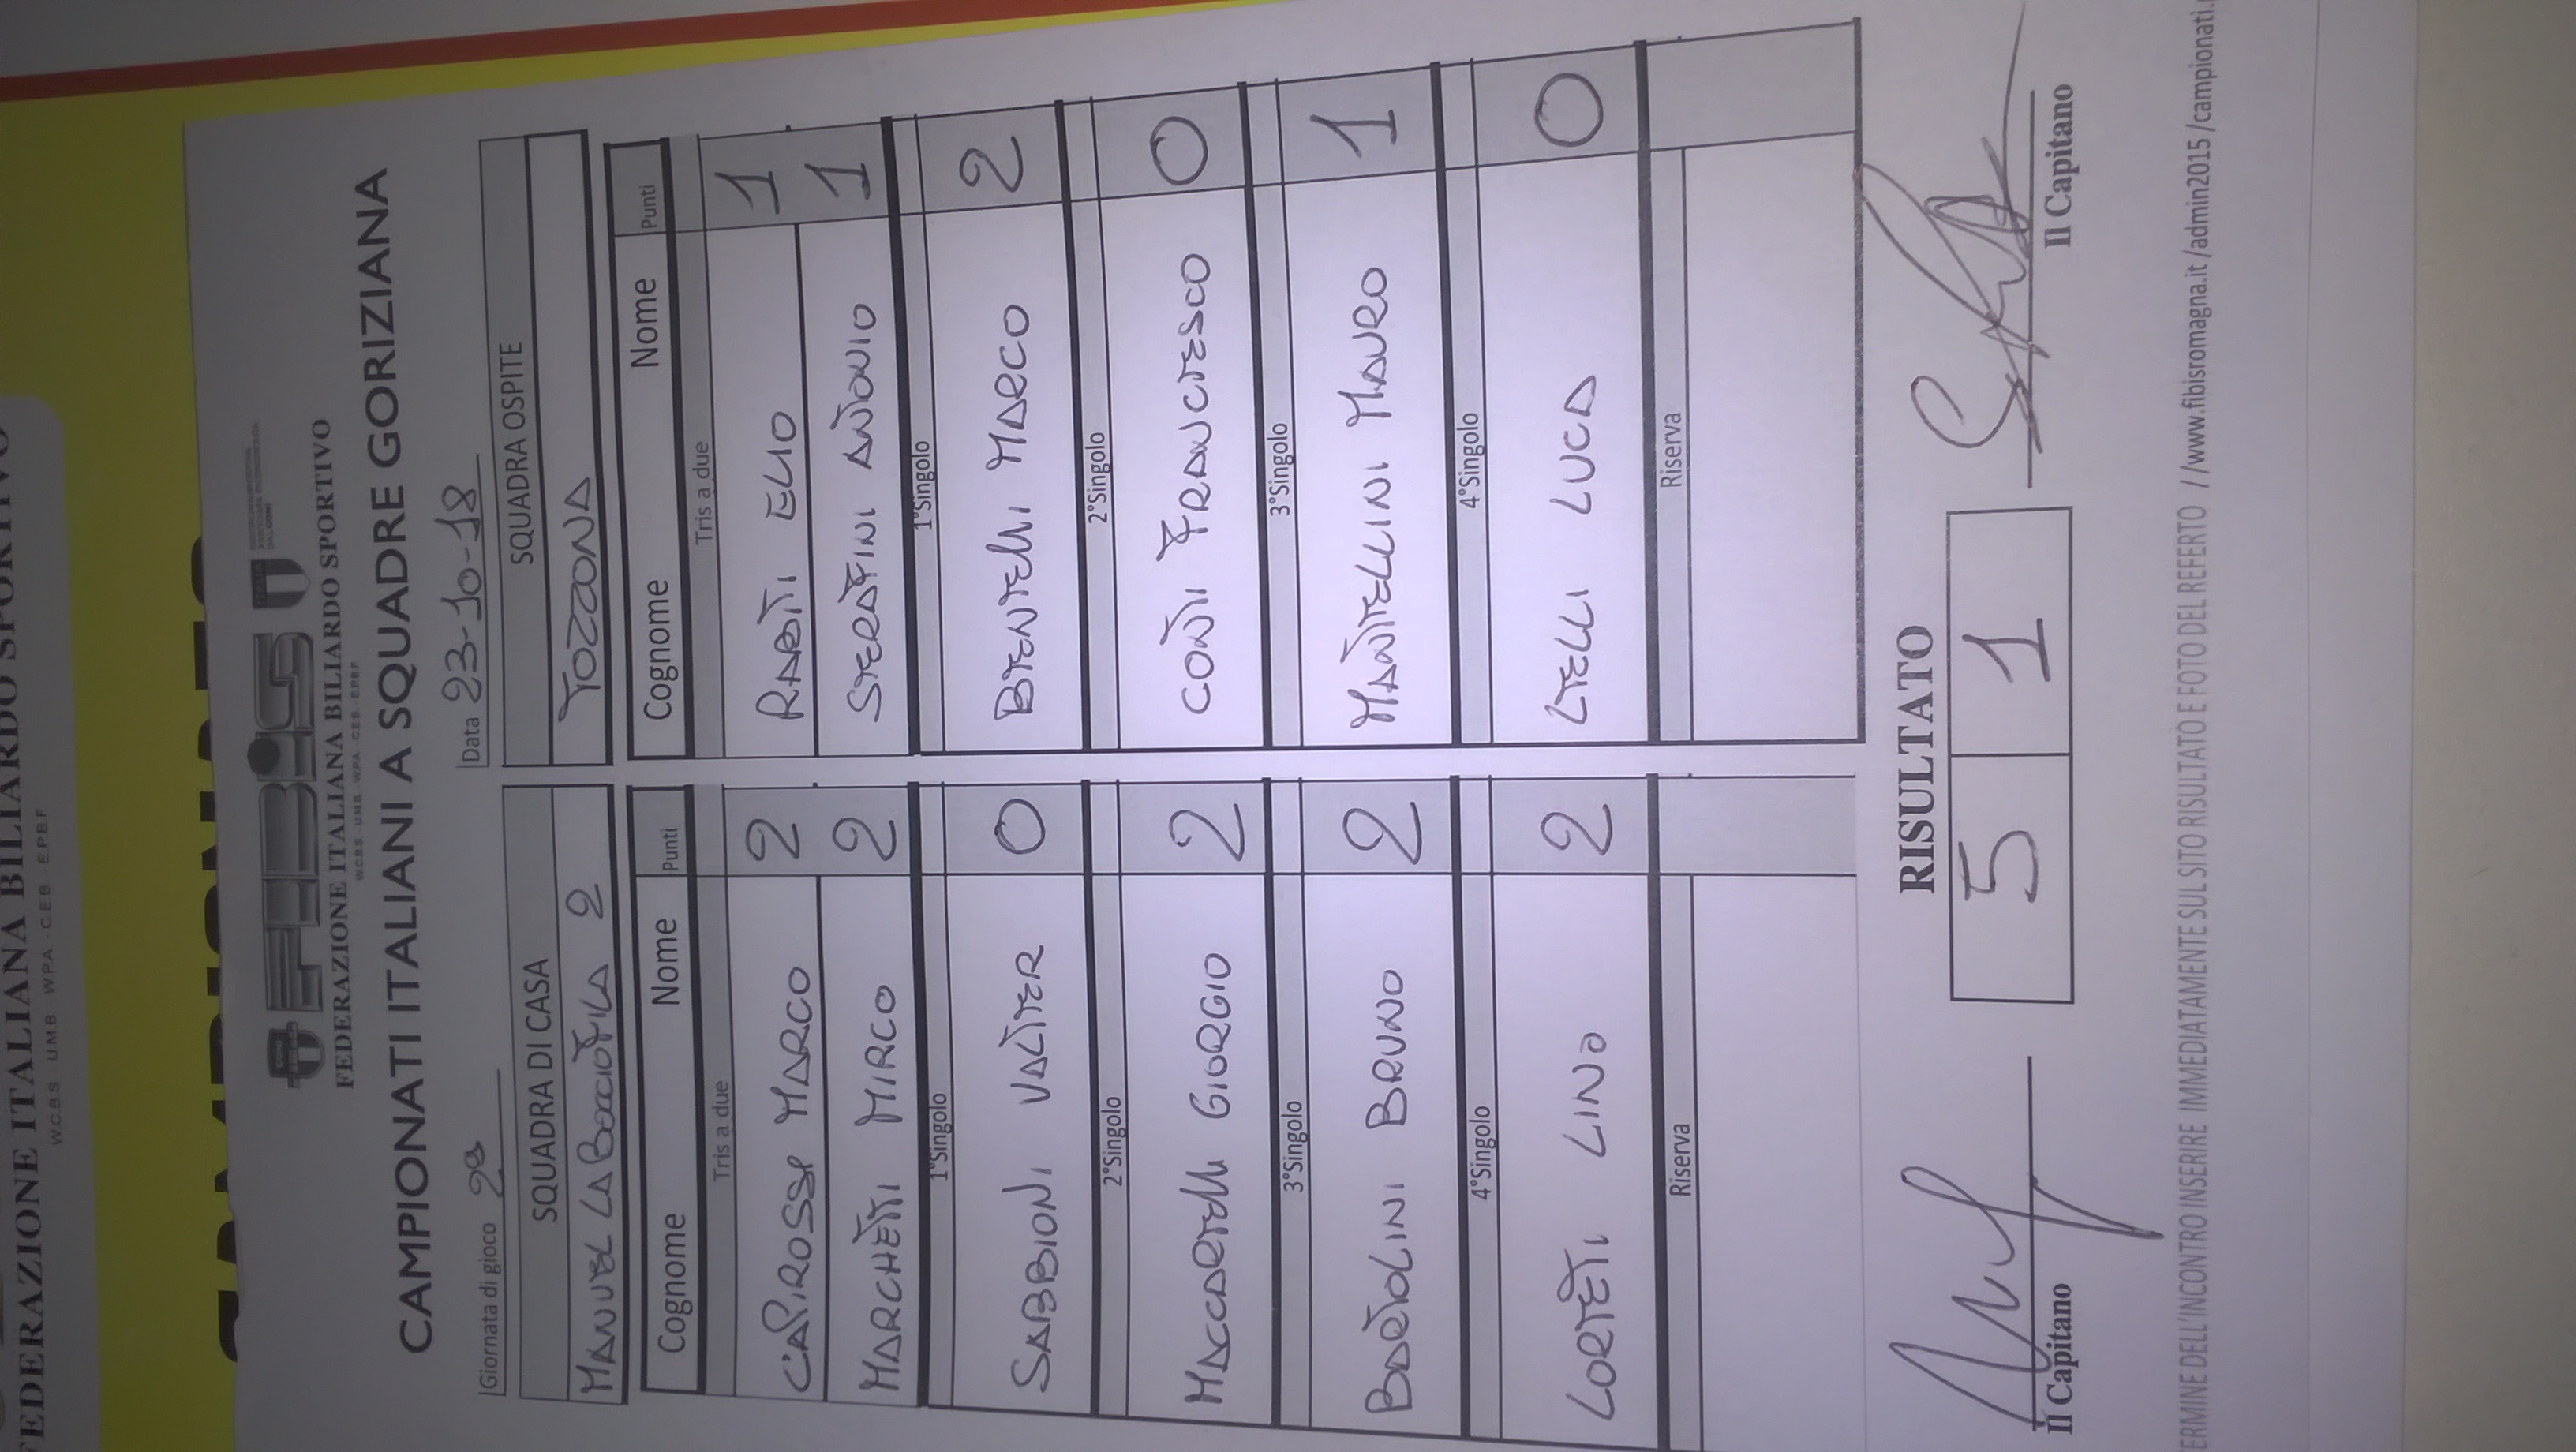 FEDERAZIONE ITALIANA BILIARDO SPORTIVO
W.C.B.S. U.M.B. WPA - C.E.B. - E.P.B.F
FIBiS
FEDERAZIONE ITALIANA BILIARDO SPORTIVO
W.C.B.S. - U.M.B. - W.P.A. - C.E.B. - E.P.B.F
CAMPIONATI ITALIANI A SQUADRE GORIZIANA
Giornata di gioco 2a Data 23-10-18
SQUADRA DI CASA SQUADRA OSPITE
MANUEL LA BOCCIOFILA 2 TOZZONA
Cognome Nome Punti Cognome Nome Punti
Tris a due Tris a due
CAPIROSSI MARCO 2 RABITI ELIO 1
MARCHETTI MIRCO 2 SERAFINI ANTONIO 1
1°Singolo 1°Singolo
SABBIONI VALTER 0 BENTELLI MARCO 2
2°Singolo 2°Singolo
MACCARELLI GIORGIO 2 CONTI FRANCESCO 0
3°Singolo 3°Singolo
BARTOLINI BRUNO 2 MANTELLINI MAURO 1
4°Singolo 4°Singolo
LORETI LINO 2 LELLI LUCA 0
Riserva Riserva
RISULTATO
5 1
Il Capitano Il Capitano
ERMINE DELL'INCONTRO INSERIRE IMMEDIATAMENTE SUL SITO RISULTATO E FOTO DEL REFERTO //www.fibisromagna.it/admin2015/campionati.